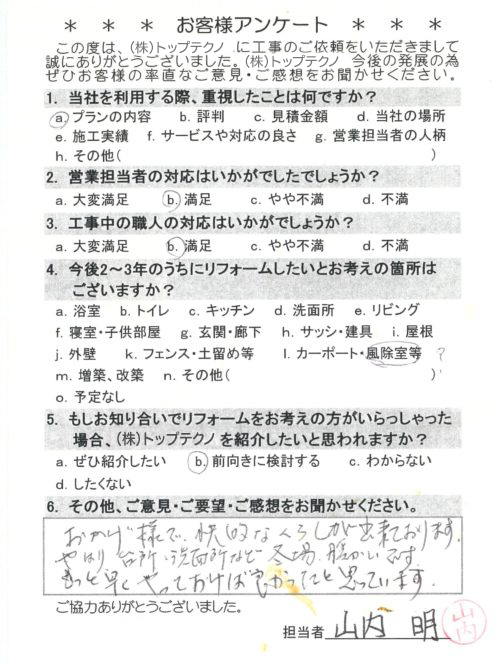 ＊ ＊ ＊ お客様アンケート ＊ ＊ ＊
この度は、(株)トップテクノ に工事のご依頼をいただきまして
誠にありがとうございました。(株)トップテクノ 今後の発展の為
ぜひお客様の率直なご意見・ご感想をお聞かせください。
1. 当社を利用する際、重視したことは何ですか？
a. プランの内容 b. 評判 c. 見積金額 d. 当社の場所
e. 施工実績 f. サービスや対応の良さ g. 営業担当者の人柄
h. その他( )
2. 営業担当者の対応はいかがでしたでしょうか？
a. 大変満足 b. 満足 c. やや不満 d. 不満
3. 工事中の職人の対応はいかがでしょうか？
a. 大変満足 b. 満足 c. やや不満 d. 不満
4. 今後2～3年のうちにリフォームしたいとお考えの箇所は
ございますか？
a. 浴室 b. トイレ c. キッチン d. 洗面所 e. リビング
f. 寝室・子供部屋 g. 玄関・廊下 h. サッシ・建具 i. 屋根
j. 外壁 k. フェンス・土留め等 l. カーポート・風除室等 ?
m. 増築、改築 n. その他( )
o. 予定なし
5. もしお知り合いでリフォームをお考えの方がいらっしゃった
場合、(株)トップテクノ を紹介したいと思われますか？
a. ぜひ紹介したい b. 前向きに検討する c. わからない
d. したくない
6. その他、ご意見・ご要望・ご感想をお聞かせください。
おかげ様で、快的なくらしが出来ております。
やはり台所・洗面所など冬場、暖かいです。
もっと早くやっておけば良かったと思っています。
ご協力ありがとうございました。
担当者 山内 明 山内